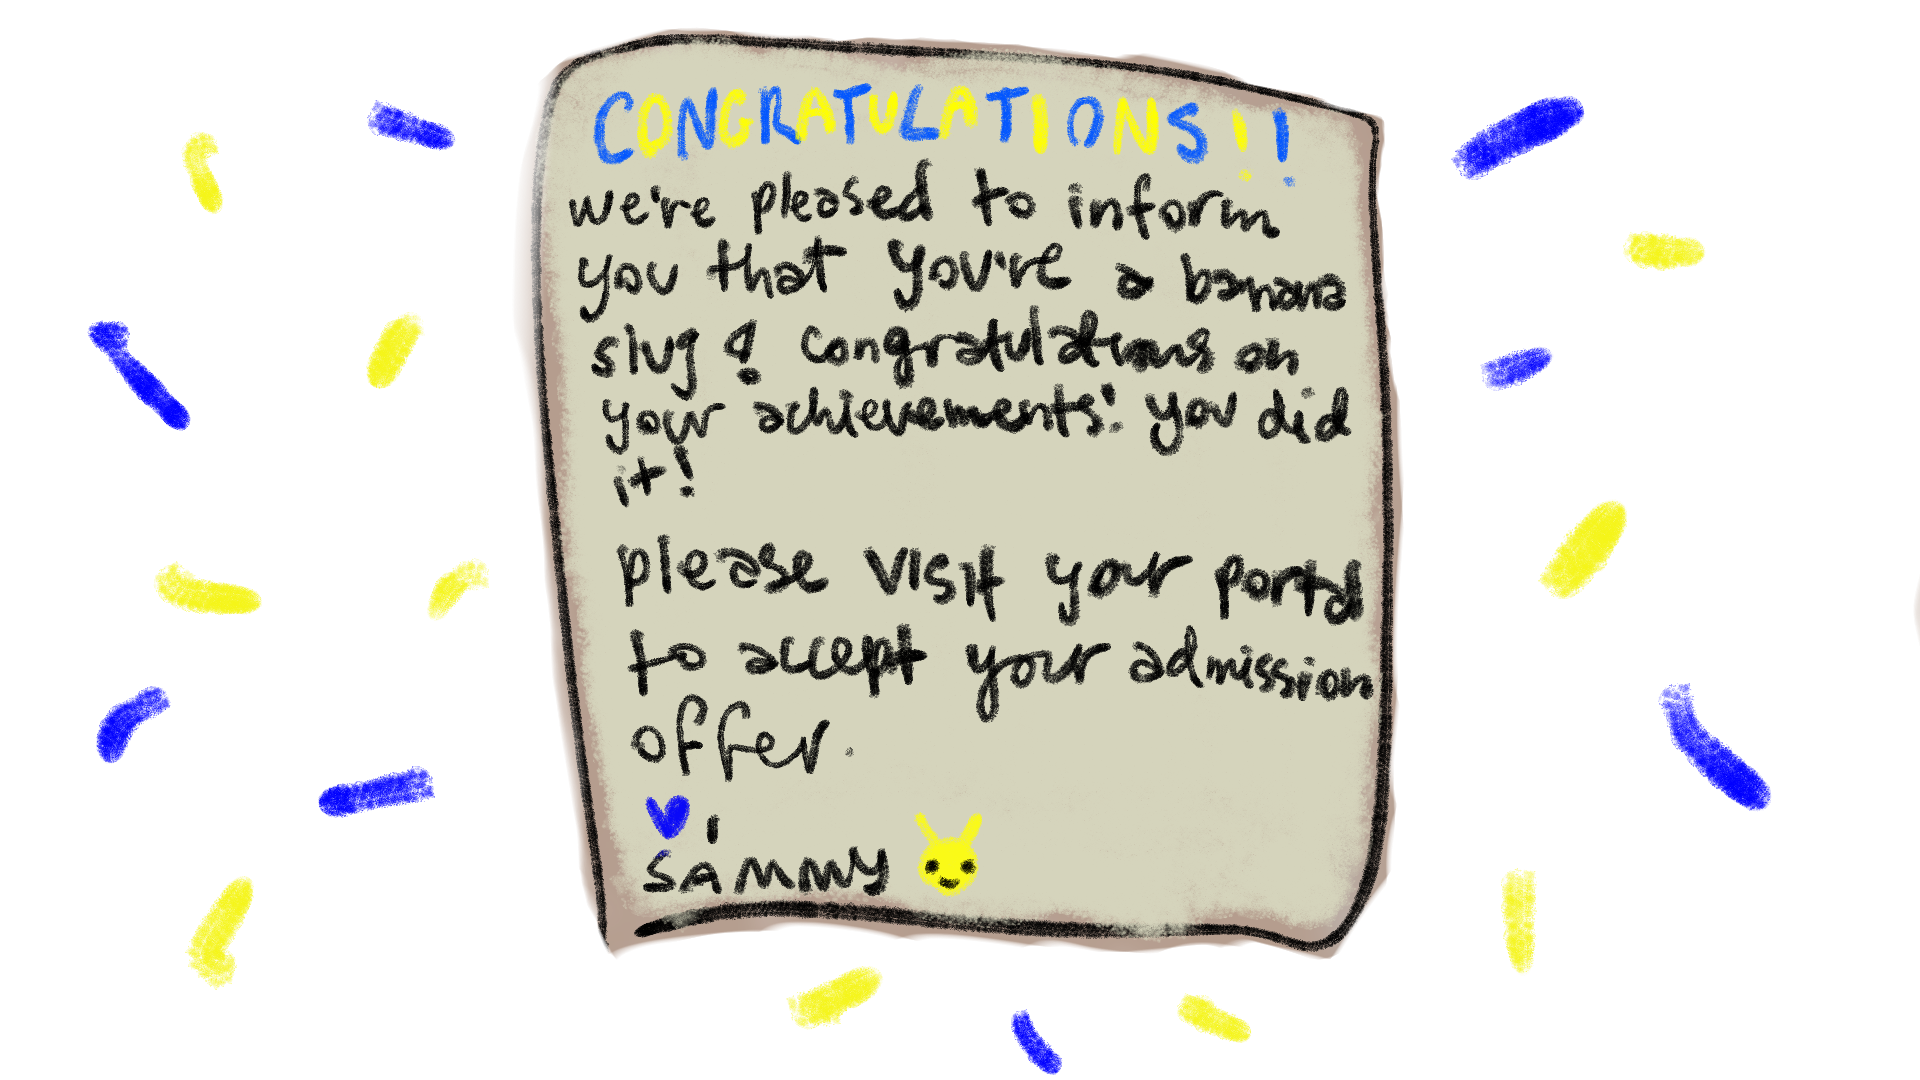 CONGRATULATIONS!!
we're pleased to inform
you that you're a banana
slug! congratulations on
your achievements! you did
it!
please visit your portal
to accept your admission
offer.
♥,
SAMMY